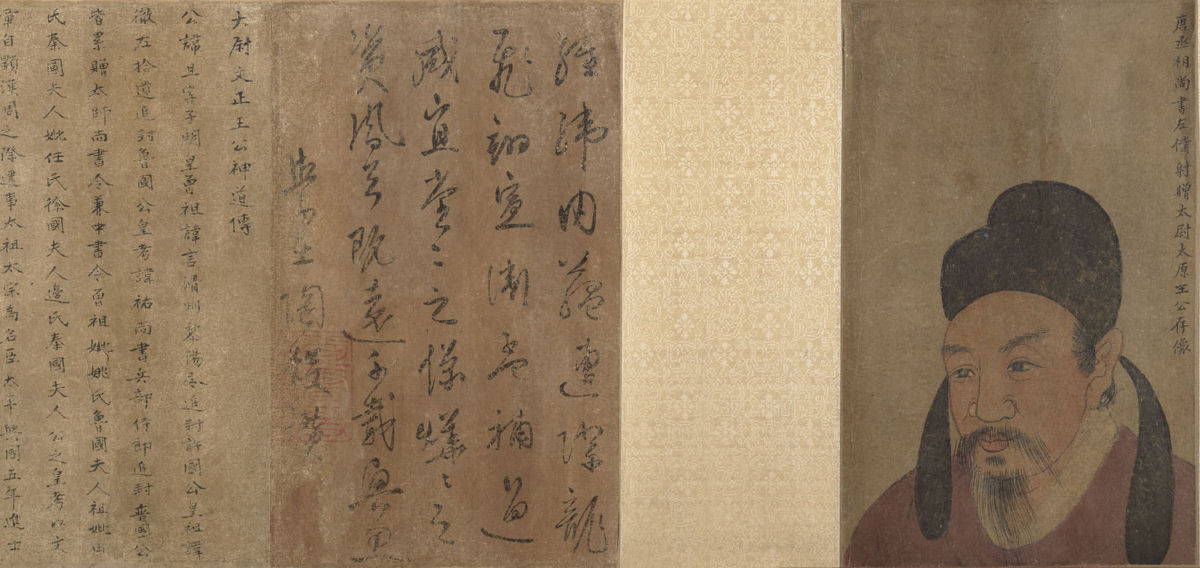 唐丞相尚書左僕射贈太尉太原王公存像
經緯內蘊遭際龍
飛翊宣 補過
咸宜堂堂之儀
資風 既遠千載興思
生陶 贊
大尉文正王公神道傳
公諱旦字子明皇曾祖諱言滑州黎陽令追封許國公皇祖諱
徹左拾遺追封魯國公皇考諱祐尚書兵部侍郎追封晉國公
皆累贈太師尚書令兼中書令曾祖妣姚氏魯國夫人祖妣田
氏秦國夫人妣任氏徐國夫人邊氏秦國夫人公之皇考以文
章自顯漢周之際逮事太祖太宗為名臣太平興國五年進士